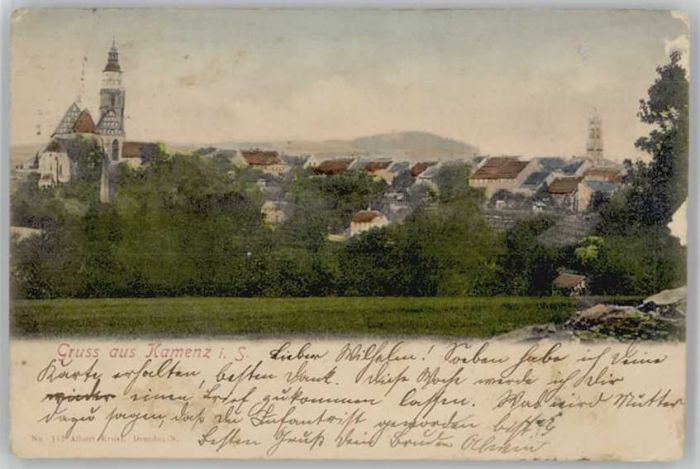 Gruss aus Kamenz i. S. Lieber Wilhelm! Soeben habe ich Deine
Karte erhalten, besten Dank. Diese Woche werde ich Dir
wieder einen Brief zukommen lassen. Was wird Mutter
dazu sagen, daß du Infantrist geworden bist?
No. 112 Albert Dresden-N. Besten Gruß Dein Bruder